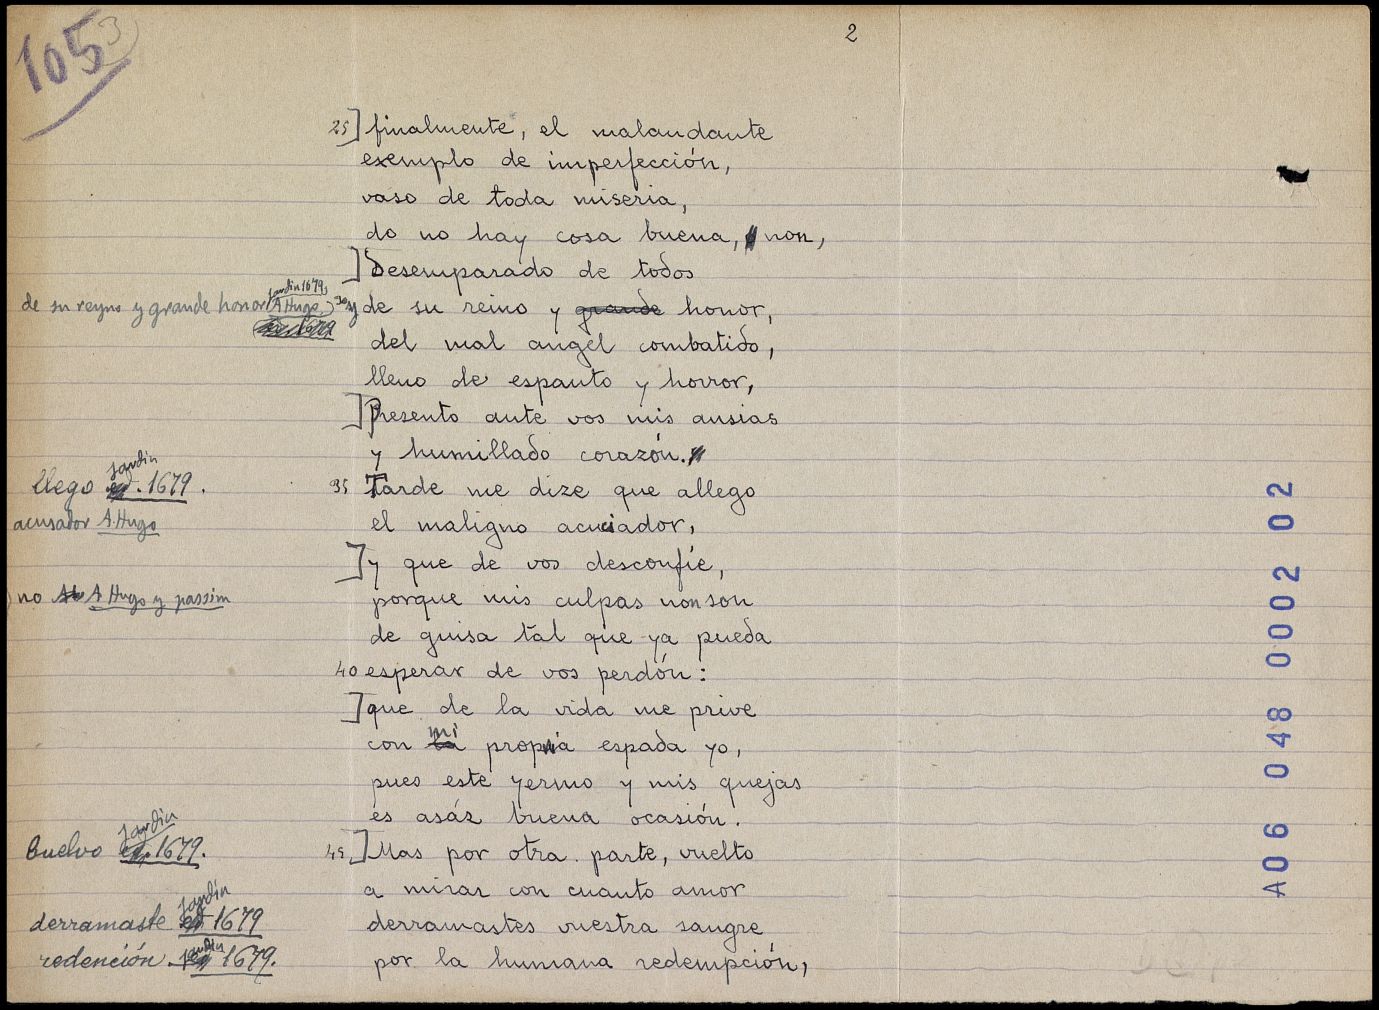 105
3)
2
25] finalmente, el malandante
exemplo de imperfección,
vaso de toda miseria,
do no hay cosa buena, non,
] Desemparado de todos
de su reyno y grande honor (Jardin 1679, A Hugo) 30 y de su reino y grande honor,
1679
del mal angel combatido,
lleno de espanto y horror,
] Presento ante vos mis ansias
y humillado corazón.
llego Jardin ed. 1679. 35 Tarde me dize que allego
acusador A. Hugo el maligno acuciador,
] y que de vos desconfíe,
) no A Hugo y passim porque mis culpas non son
de guisa tal que ya pueda
40 esperar de vos perdón:
] que de la vida me prive
con la mi propia espada yo,
pues este yermo y mis quejas
es asáz buena ocasión.
buelvo Jardin ed. 1679. 45 ] Mas por otra parte, vuelto
a mirar con cuanto amor
derramaste Jardin ed. 1679 derramastes vuestra sangre
redención. Jardin 1679. por la humana redempción,
A06 048 0002 02